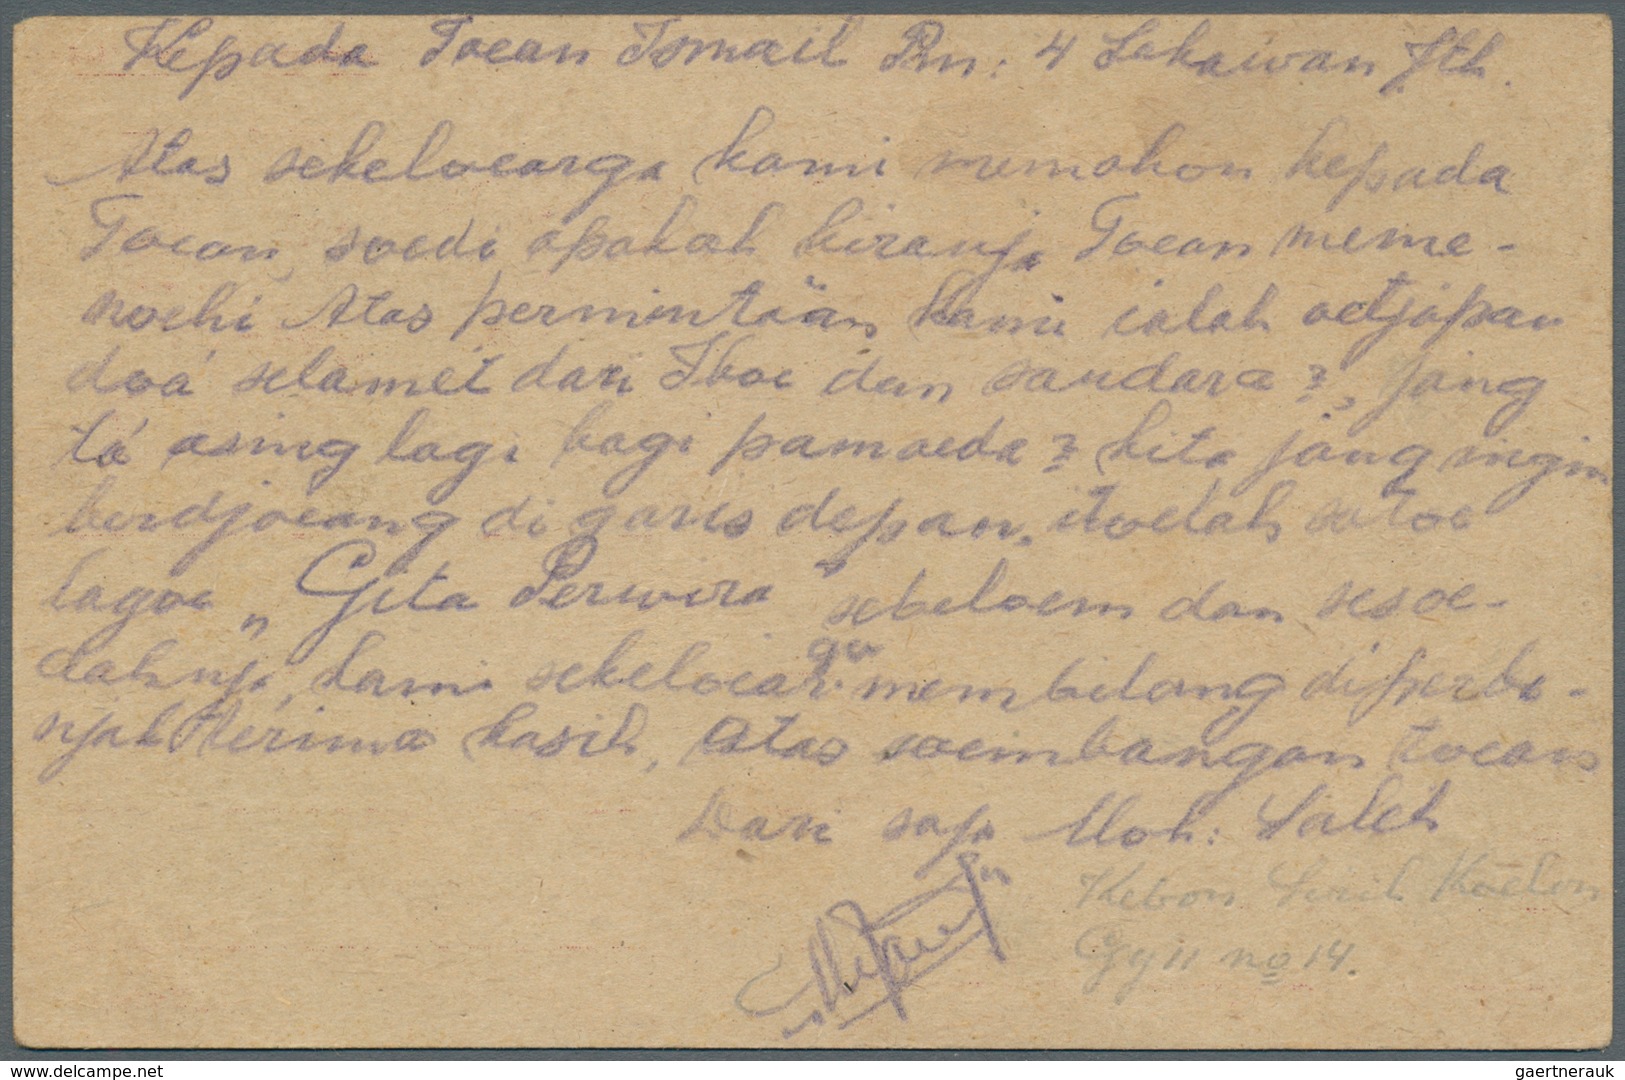 Kepada Toean Ismail Pm: 4 Sekawan Jth.
Atas sekeloearga kami memohon kepada
Toean, soedi apakah kiranja Toean meme-
noehi Atas permintäan kami ialah oetjapan
doá selamet dari Iboe dan saudara 2, jang
tá asing lagi bagi pamoeda 2 kita jang ingin
berdjoeang di garis depan, itoelah satoe
lagoe „Gita Perwira" sebeloem dan sesoe-
dahnja, kami sekeloearga membilang diperba-
njak terima kasih, Atas soembangan toean
Dari saja Moh: Saleh
Kebon Sirih Koelon
Gg II no 14.
delcampe.net
gaertnerauk